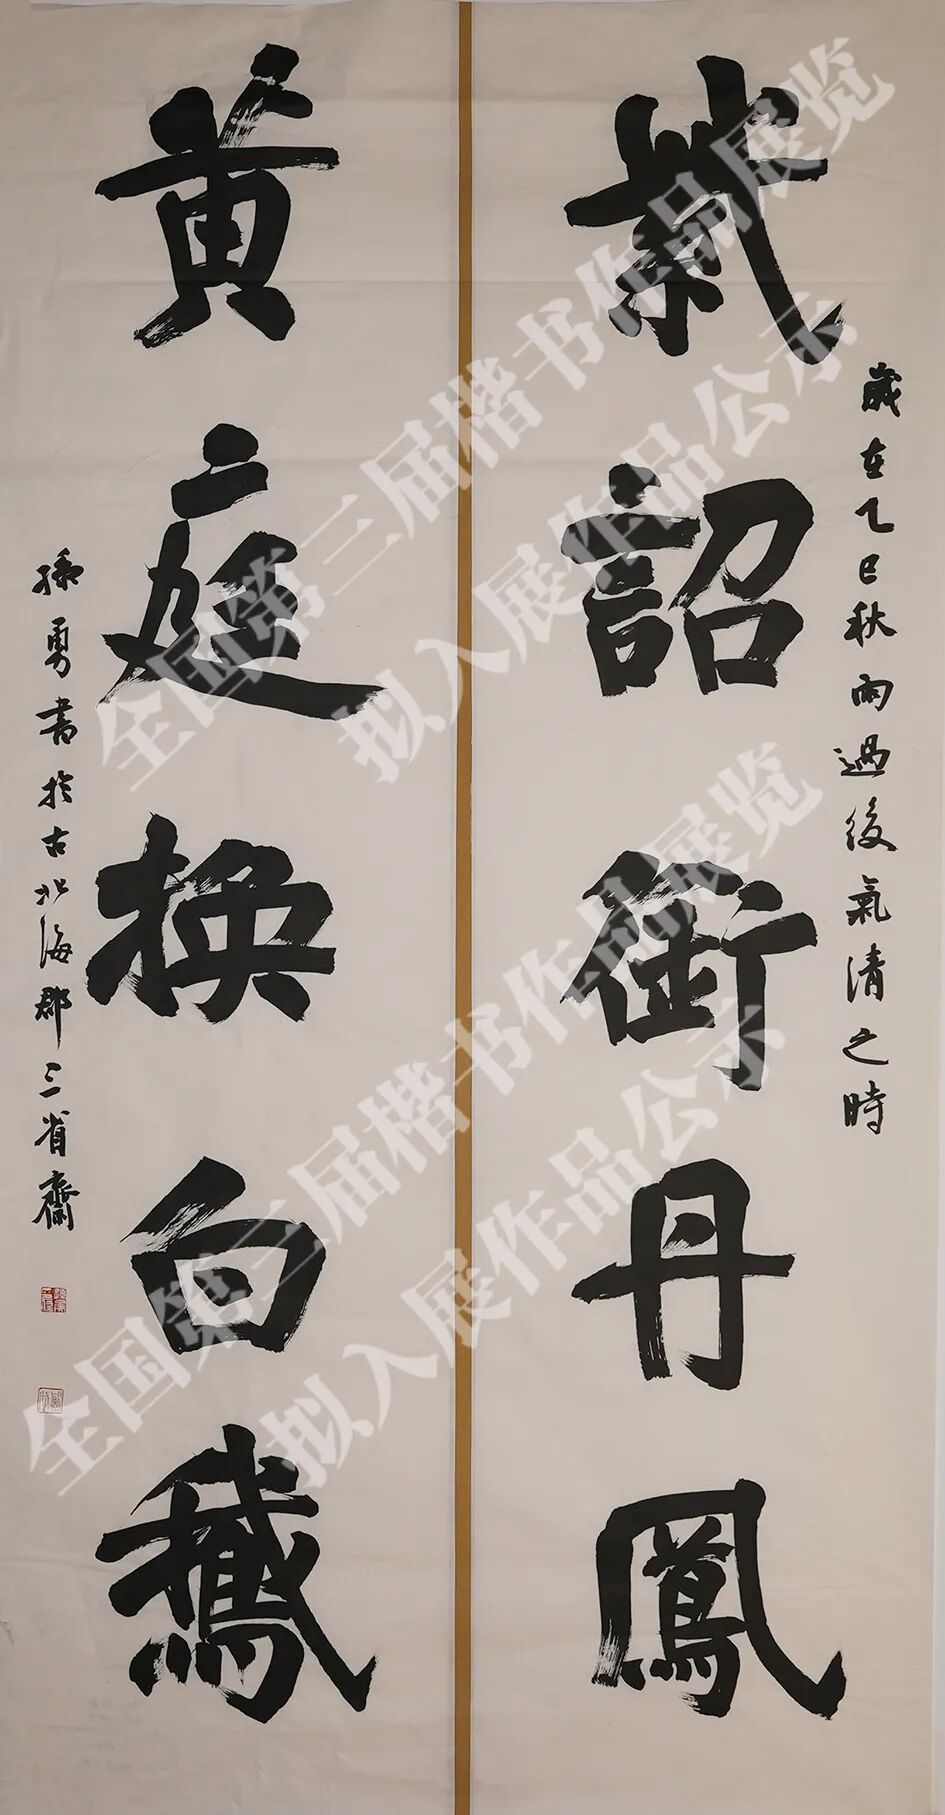 紫詔銜丹鳳
歲在乙巳秋雨過後氣清之時
黄庭換白䳘
孫勇書於古北海郡三省齋
全国第三届楷书作品展览
拟入展作品公示
全国第三届楷书作品展览
拟入展作品公示